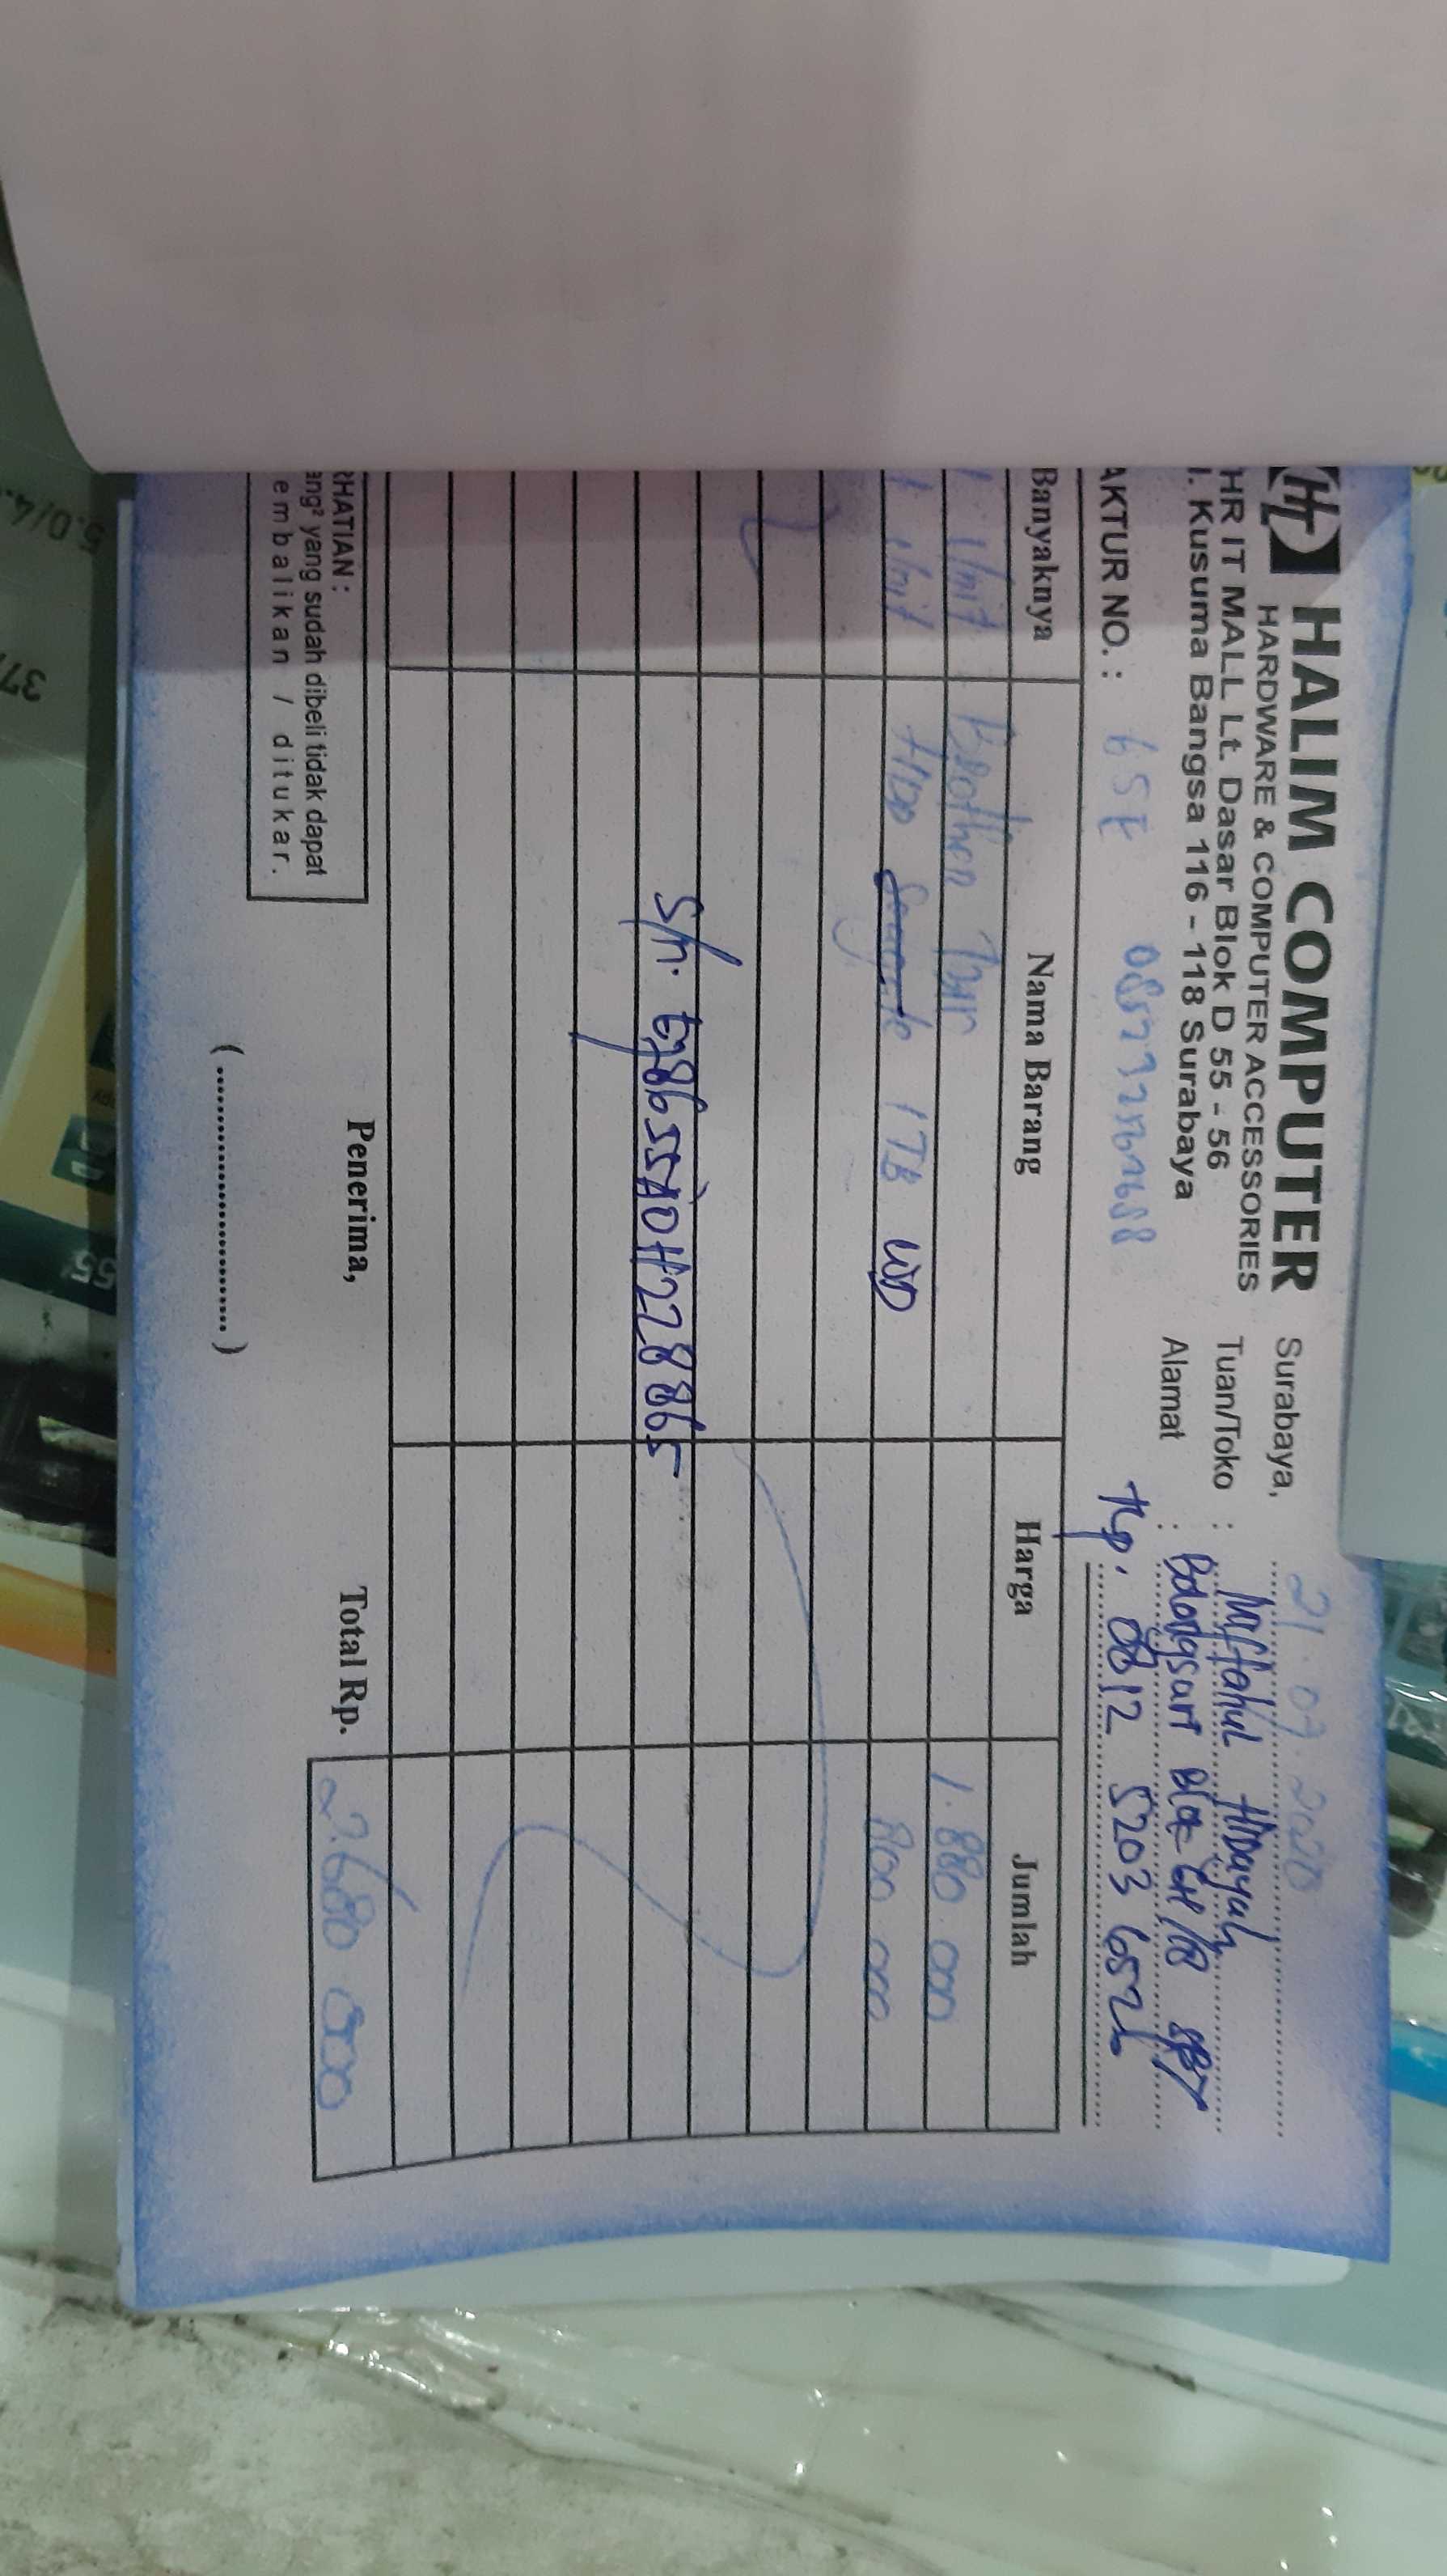 HALIM COMPUTER
HARDWARE & COMPUTER ACCESSORIES
HR IT MALL Lt. Dasar Blok D 55 - 56
l. Kusuma Bangsa 116 - 118 Surabaya
Surabaya, 21.07.2020
Tuan/Toko : Miftahul Hidayah
Alamat : Bolongsari Blok SBY
AKTUR NO. : 65E
Tlp. 0812 5203 6526
Banyaknya Nama Barang Harga Jumlah
1 Unit Brother 1.880.000
1 Unit HDD 1TB WD 800.000
S/n. 
Total Rp. 2.680.000
RHATIAN :
ang² yang sudah dibeli tidak dapat
embalikan / ditukar.
Penerima,
(....................)
5.0/4.
37
55